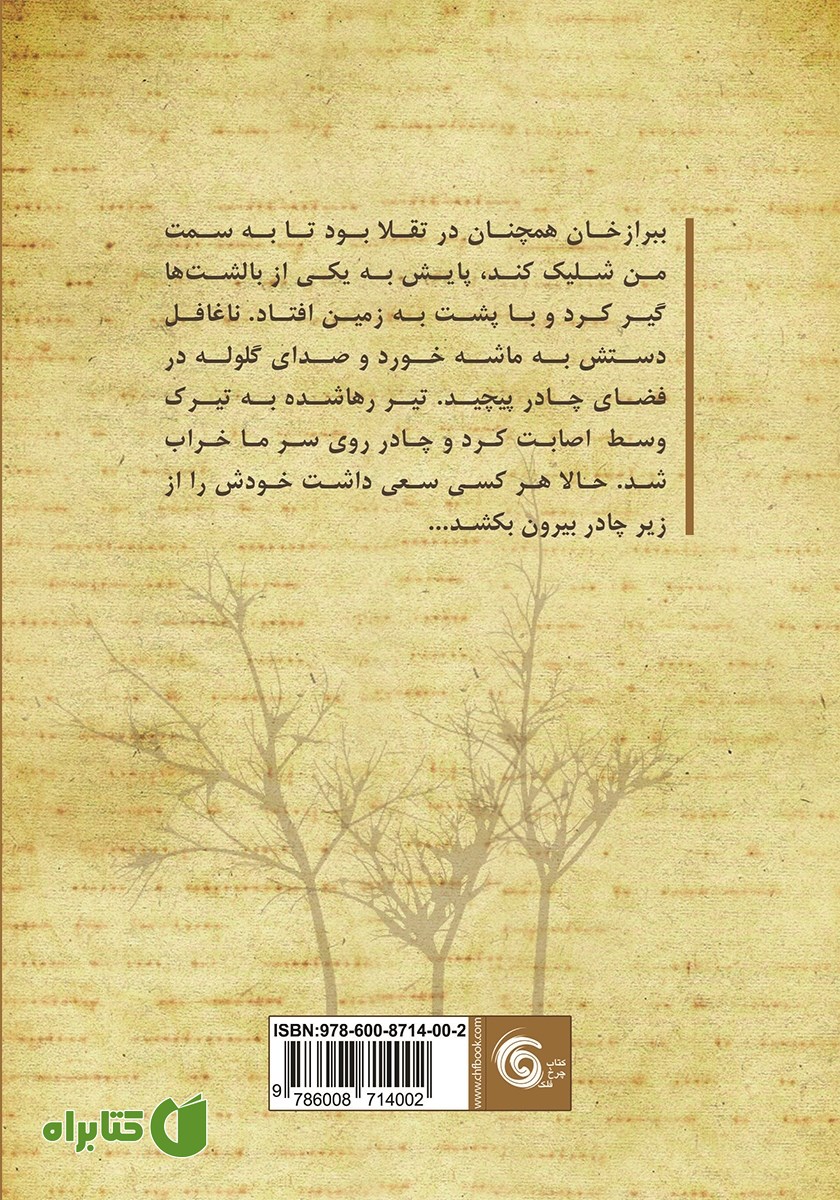 ببرازخان همچنان در تقلا بود تا به سمت
من شلیک کند، پایش به یکی از بالشت‌ها
گیر کرد و با پشت به زمین افتاد. ناغافل
دستش به ماشه خورد و صدای گلوله در
فضای چادر پیچید. تیر رهاشده به تیرک
وسط اصابت کرد و چادر روی سر ما خراب
شد. حالا هر کسی سعی داشت خودش را از
زیر چادر بیرون بکشد...
ISBN:978-600-8714-00-2
9 786008 714002
www.chfbook.com
کتاب
چرخ
فلک
کتابراه